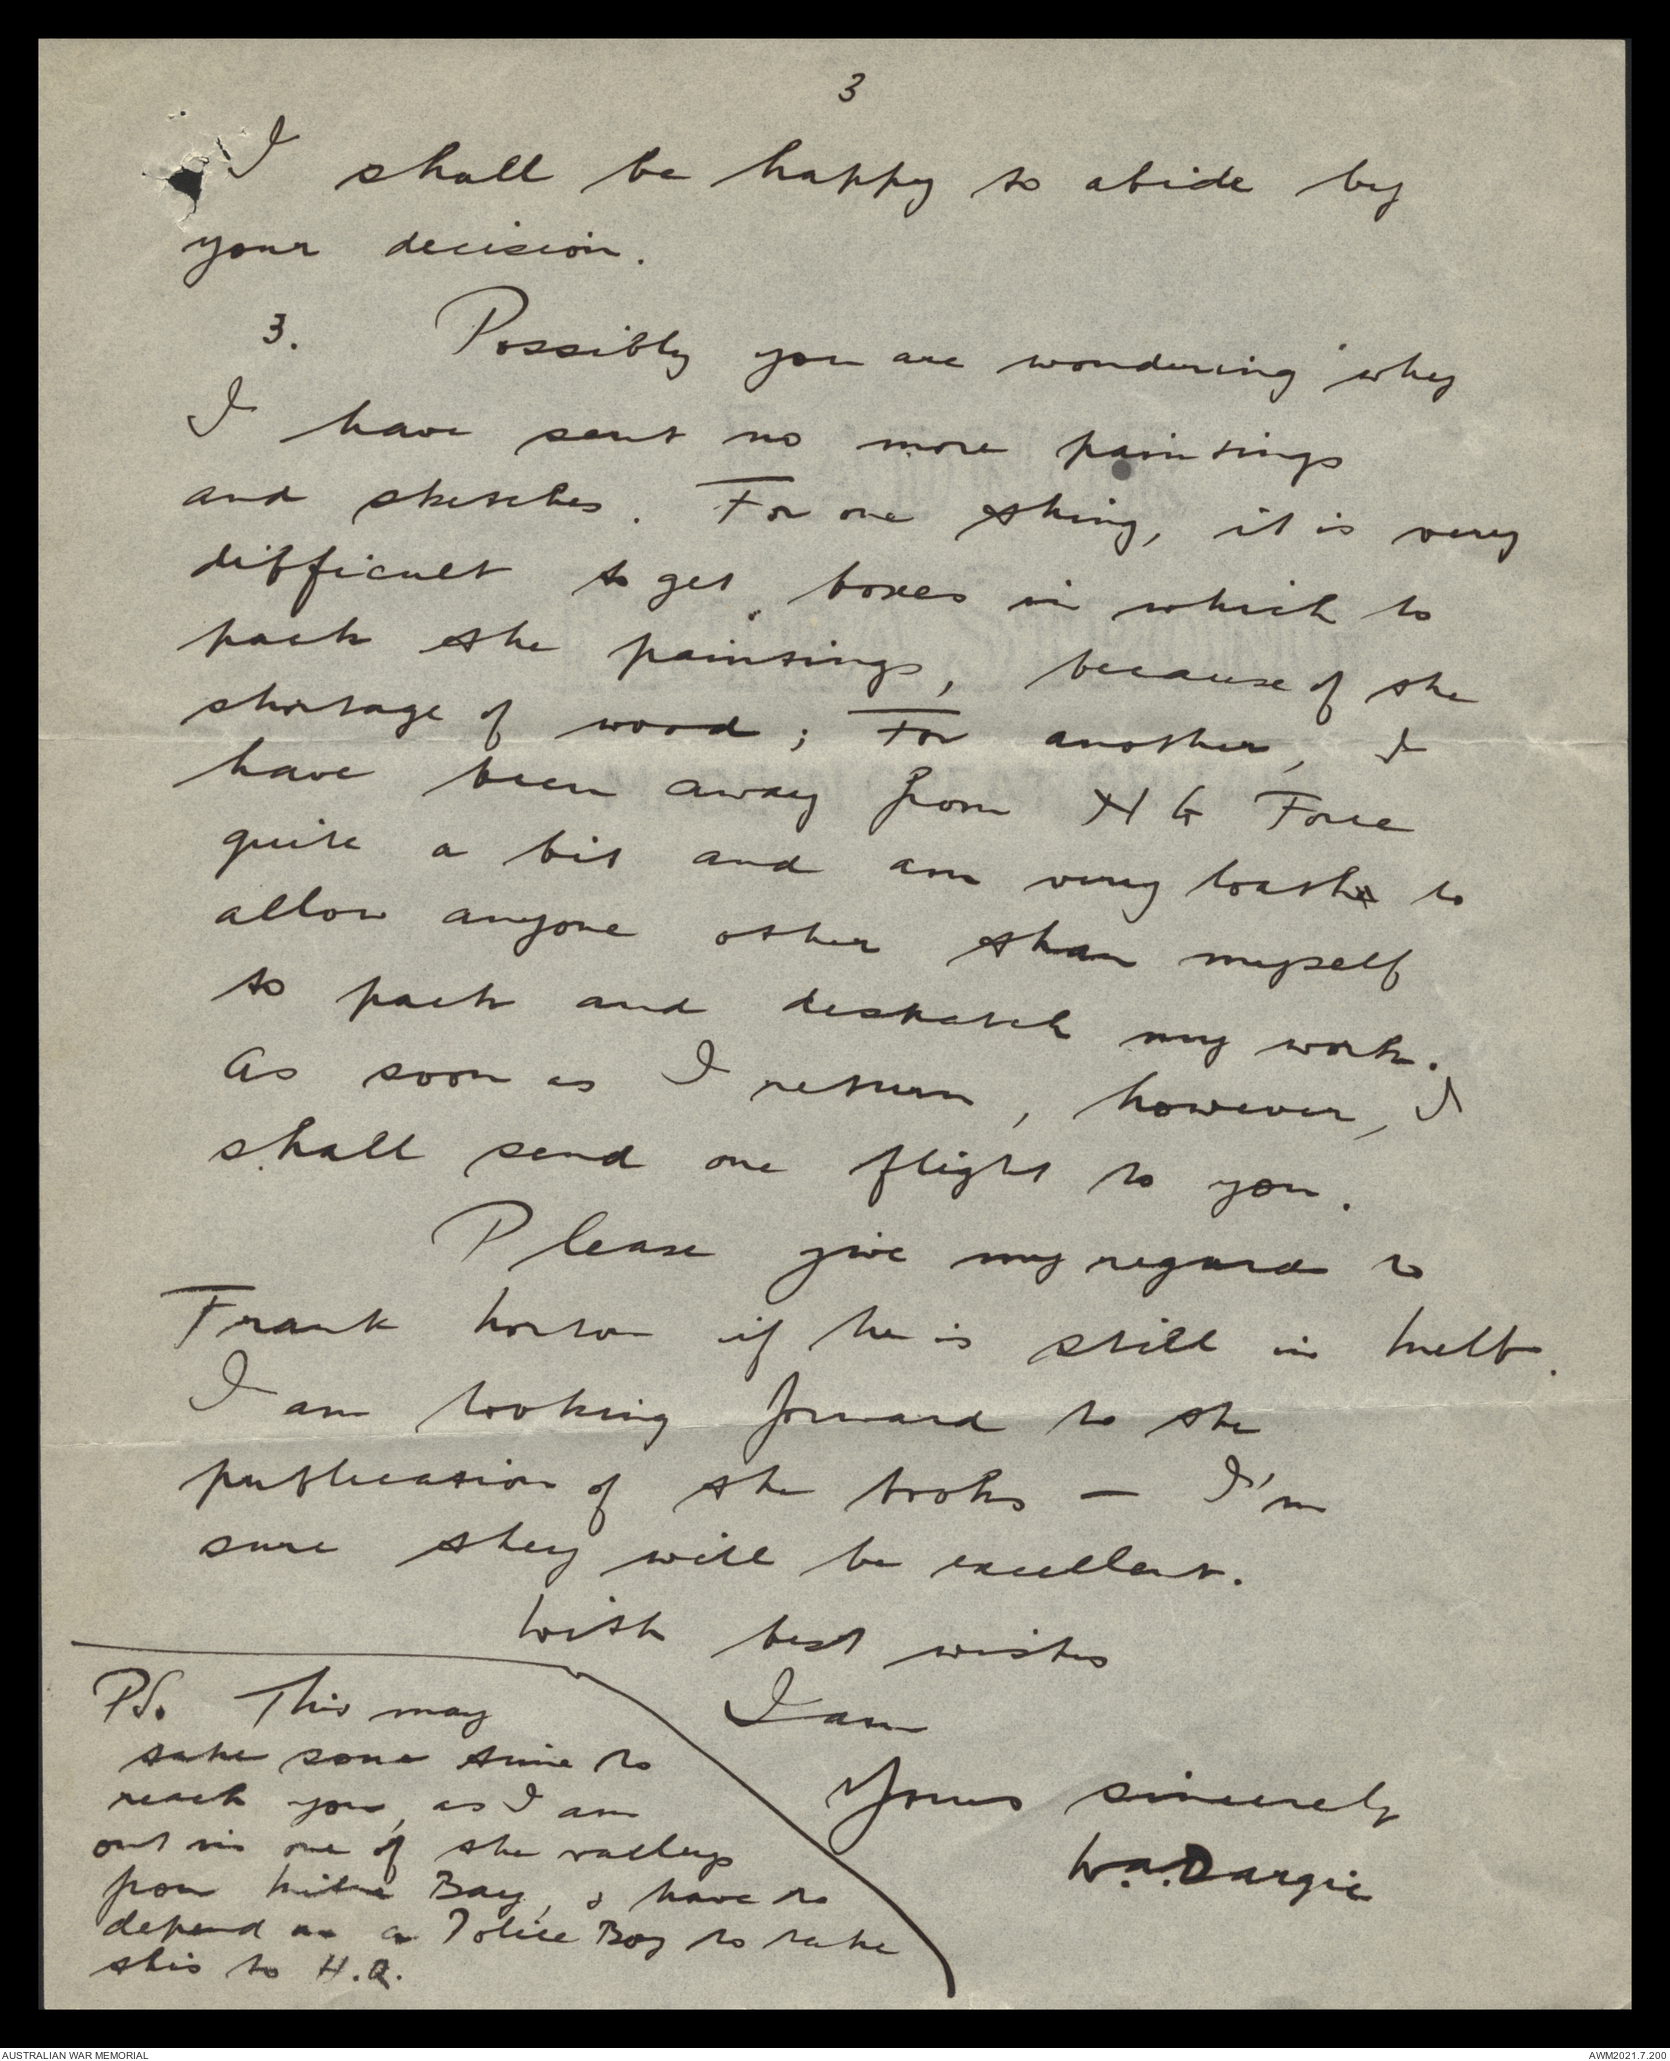 3
I shall be happy to abide by
your decision.
3. Possibly you are wondering why
I have sent no more paintings
and sketches. For one thing, it is very
difficult to get boxes in which to
pack the paintings, because of the
shortage of wood; For another, I
have been away from NG Force
quite a bit and am very loath to
allow anyone other than myself
to pack and despatch my work.
As soon as I return, however, I
shall send one flight to you.
Please give my regard to
Frank Norton if he is still in Melb.
I am looking forward to the
publication of the books — I'm
sure they will be excellent.
With best wishes
I am
Yours sincerely
W.A.Dargie
P.S. This may
take some time to
reach you, as I am
out in one of the valleys
from Milne Bay, & have to
depend on a Police Boy to take
this to H.Q.
AUSTRALIAN WAR MEMORIAL
AWM2021.7.200